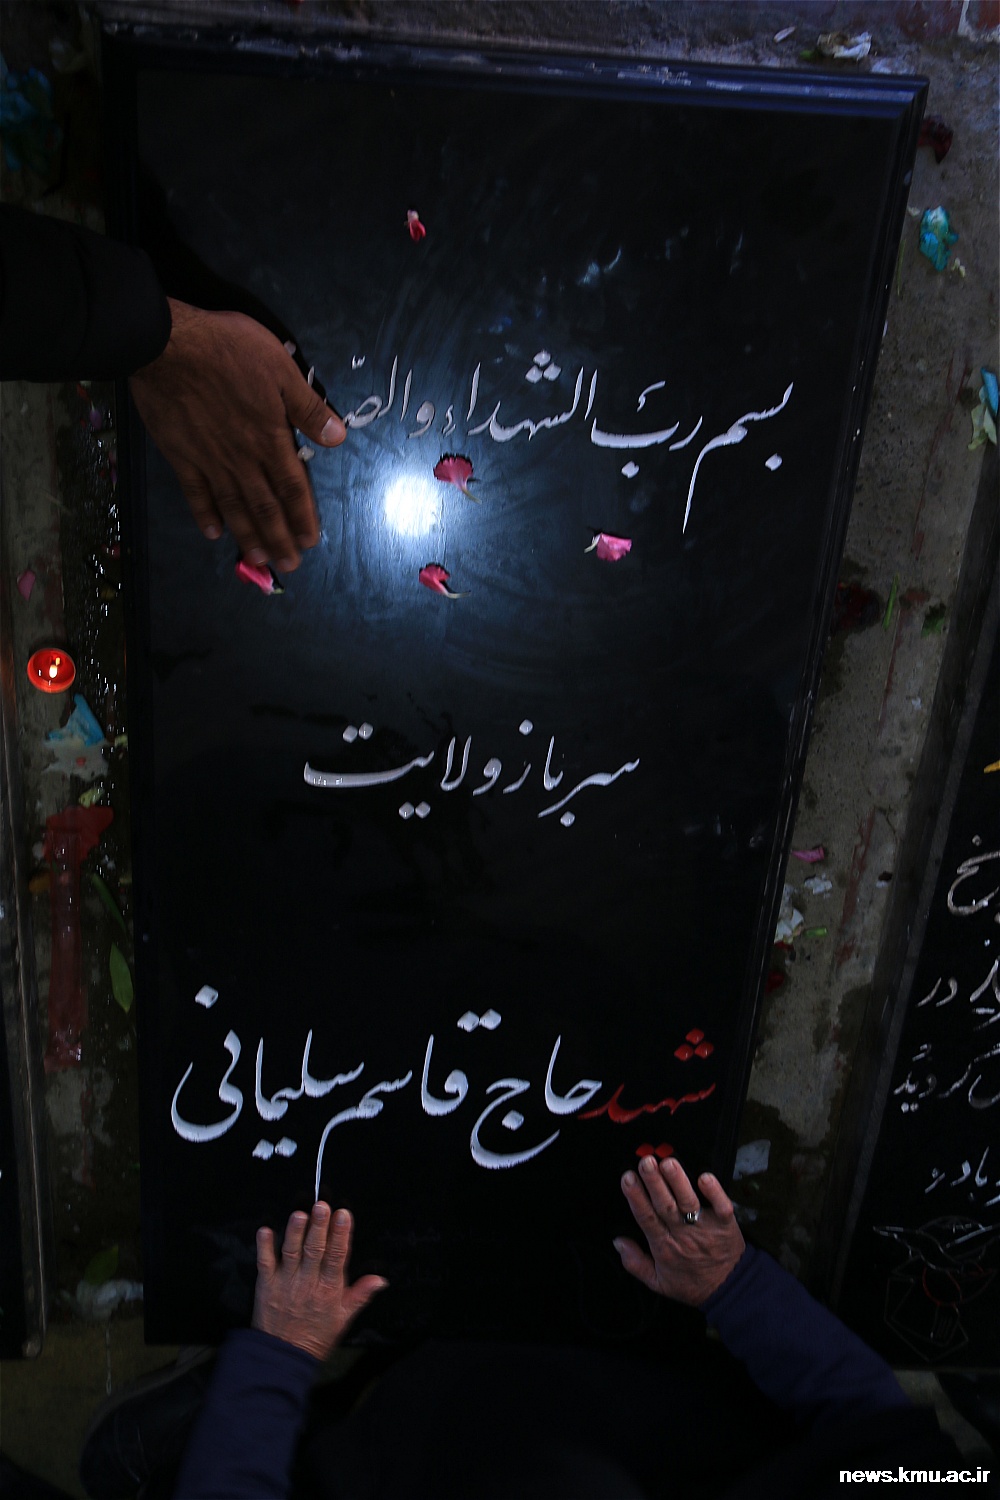 بسم ربّ الشهداء والصّ
سرباز ولایت
شهید حاج قاسم سلیمانی
در
گردید
news.kmu.ac.ir